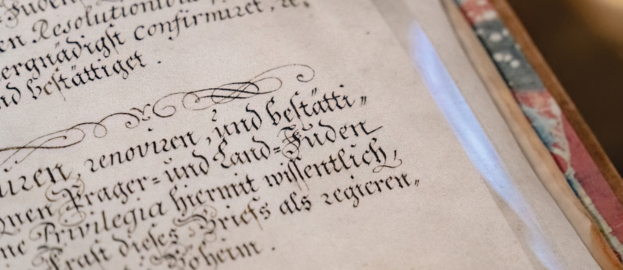 Juden
en Resolution
ergnädigst confirmiret, ꝛc.
nd bestättiget.
iren, renoviren, und bestätti„
nen Prager= und Land=Juden
ne Privilegia hiermit wissentlich,
Krafft dieses Briefs als regieren„
Böheim.